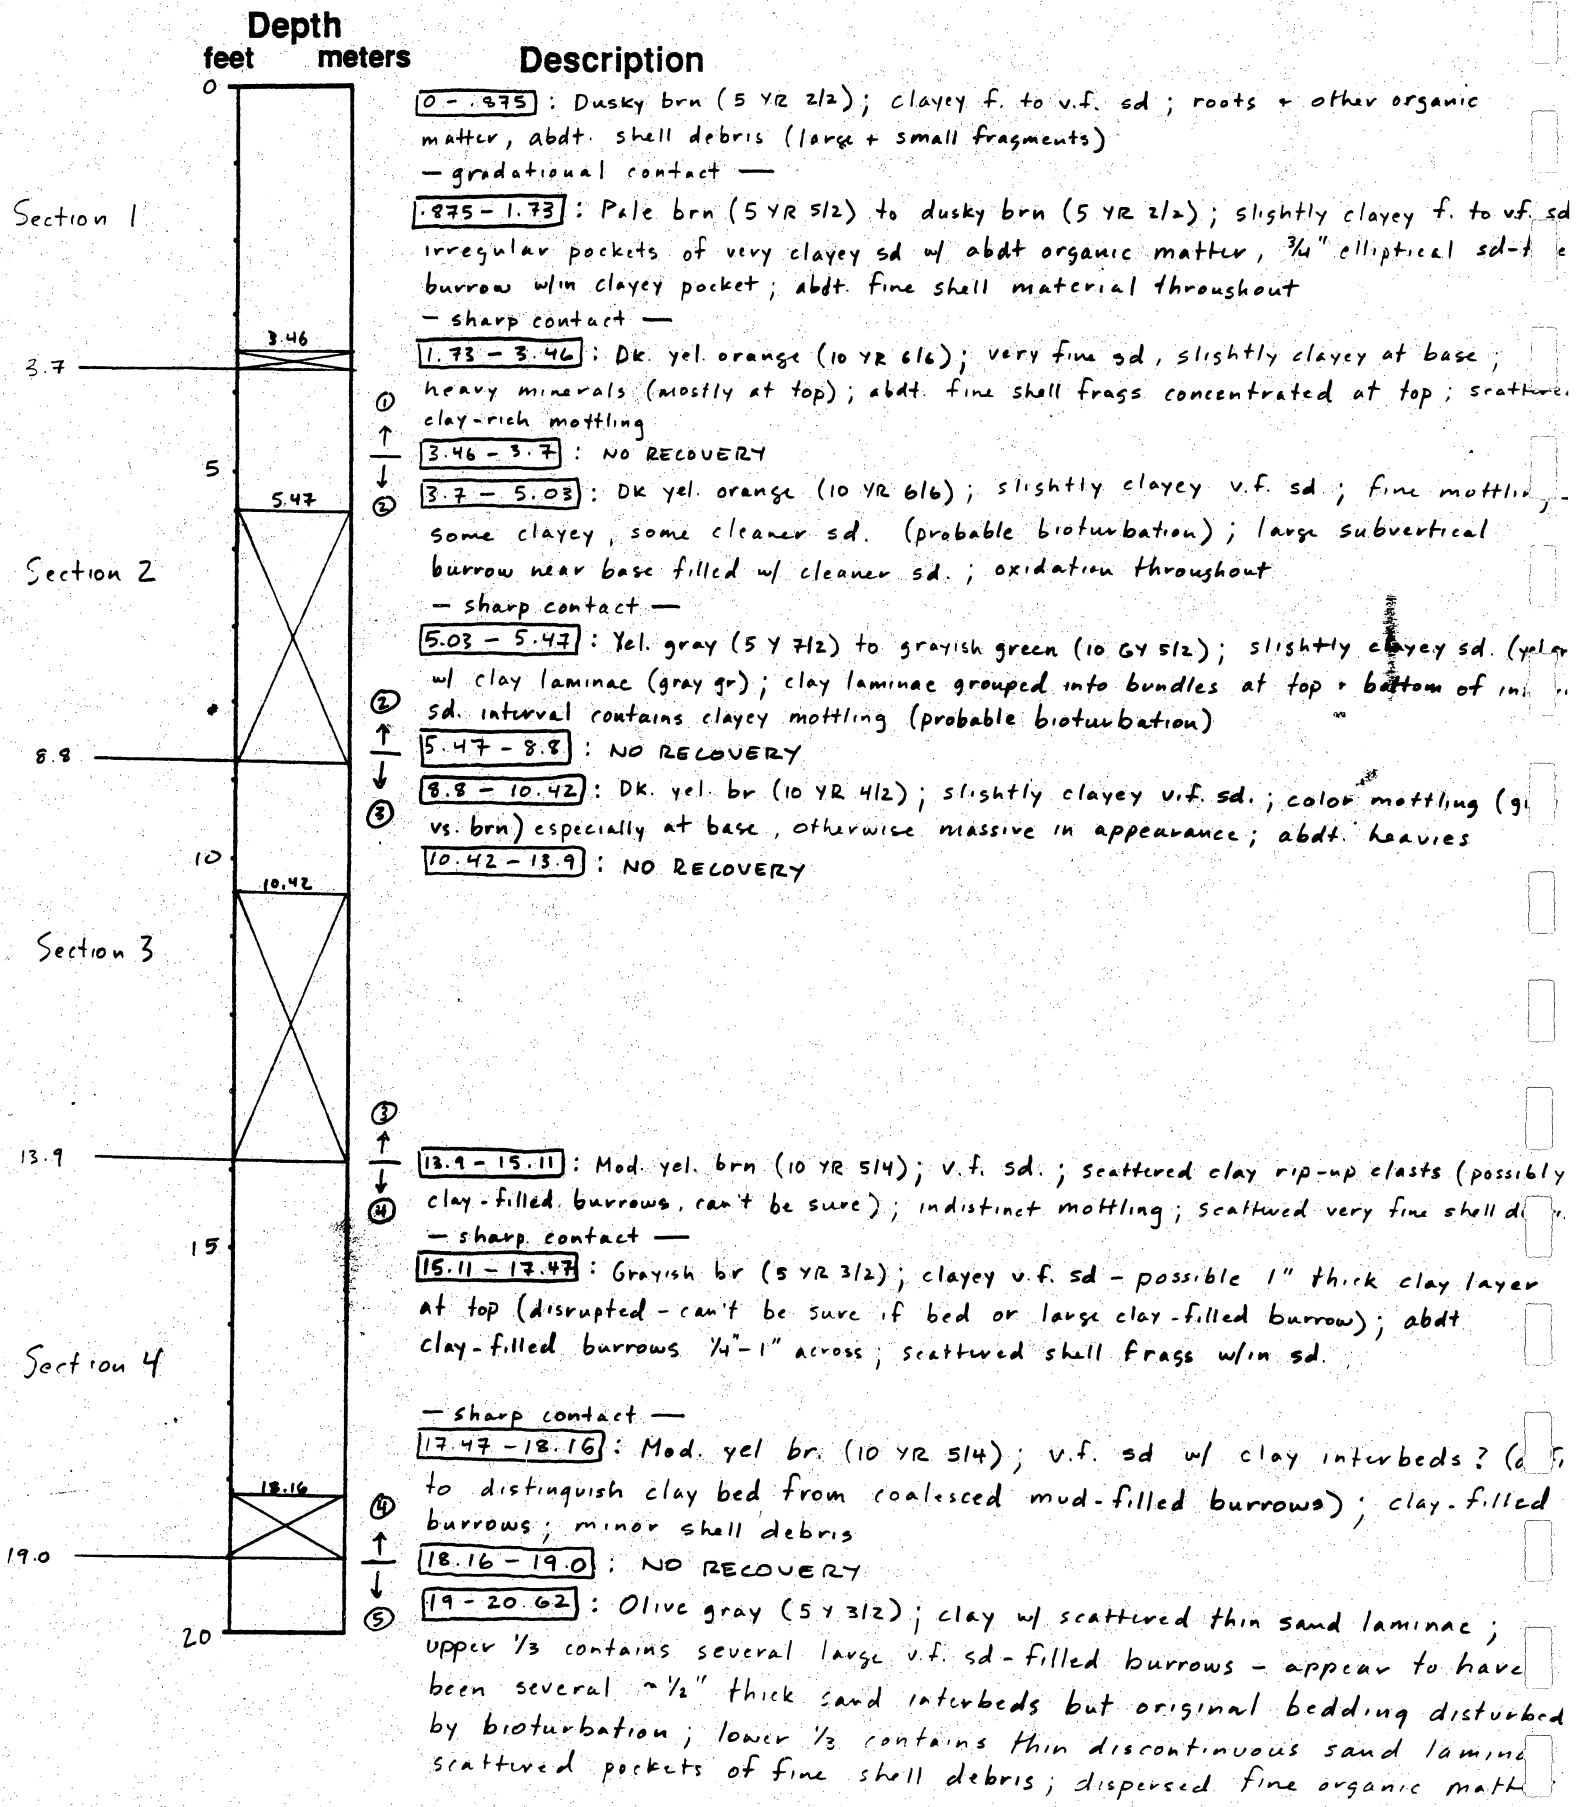 Depth
feet meters Description
0
0 - .875 : Dusky brn (5 YR 2/2); clayey f. to v.f. sd ; roots + other organic
matter, abdt. shell debris (large + small fragments)
— gradational contact —
Section 1
.875 - 1.73 : Pale brn (5 YR 5/2) to dusky brn (5 YR 2/2); slightly clayey f. to v.f. sd
irregular pockets of very clayey sd w/ abdt organic matter, 3/4" elliptical
burrow w/in clayey pocket ; abdt. fine shell material throughout
— sharp contact —
3.46
3.7
1.73 - 3.46 : Dk. yel. orange (10 YR 6/6); very fine sd, slightly clayey at base ;
heavy minerals (mostly at top) ; abdt. fine shell frags concentrated at top ;
clay-rich mottling
① ↑
3.46 - 3.7 : NO RECOVERY
5
↓ ②
5.47
3.7 - 5.03 : Dk yel. orange (10 YR 6/6) ; slightly clayey v.f. sd ; fine
some clayey, some cleaner sd. (probable bioturbation) ; large subvertical
Section 2
burrow near base filled w/ cleaner sd. ; oxidation throughout
— sharp contact —
5.03 - 5.47 : Yel. gray (5 Y 7/2) to grayish green (10 GY 5/2); slightly clayey sd.
w/ clay laminae (gray gr) ; clay laminae grouped into bundles at top + bottom of
sd. interval contains clayey mottling (probable bioturbation)
② ↑
8.8
5.47 - 8.8 : NO RECOVERY
↓ ③
8.8 - 10.42 : Dk. yel. br (10 YR 4/2) ; slightly clayey v.f. sd. ; color mottling
vs. brn) especially at base, otherwise massive in appearance ; abdt. heavies
10
10.42
10.42 - 13.9 : NO RECOVERY
Section 3
③ ↑
13.9
13.9 - 15.11 : Mod. yel. brn (10 YR 5/4) ; v.f. sd. ; scattered clay rip-up clasts (possibly
↓ ④
clay-filled burrows, can't be sure) ; indistinct mottling ; scattered very fine shell
— sharp contact —
15
15.11 - 17.47 : Grayish br (5 YR 3/2) ; clayey v.f. sd - possible 1" thick clay layer
at top (disrupted - can't be sure if bed or large clay-filled burrow) ; abdt
Section 4
clay-filled burrows 1/4"-1" across ; scattered shell frags w/in sd.
— sharp contact —
17.47 - 18.16 : Mod. yel br. (10 YR 5/4) ; v.f. sd w/ clay interbeds ?
18.16
to distinguish clay bed from coalesced mud-filled burrows) ; clay-filled
④ ↑
burrows ; minor shell debris
19.0
18.16 - 19.0 : NO RECOVERY
↓ ⑤
19 - 20.62 : Olive gray (5 Y 3/2) ; clay w/ scattered thin sand laminae ;
20
upper 1/3 contains several large v.f. sd-filled burrows - appear to have
been several ~1/2" thick sand interbeds but original bedding disturbed
by bioturbation ; lower 1/3 contains thin discontinuous sand
scattered pockets of fine shell debris ; dispersed fine organic